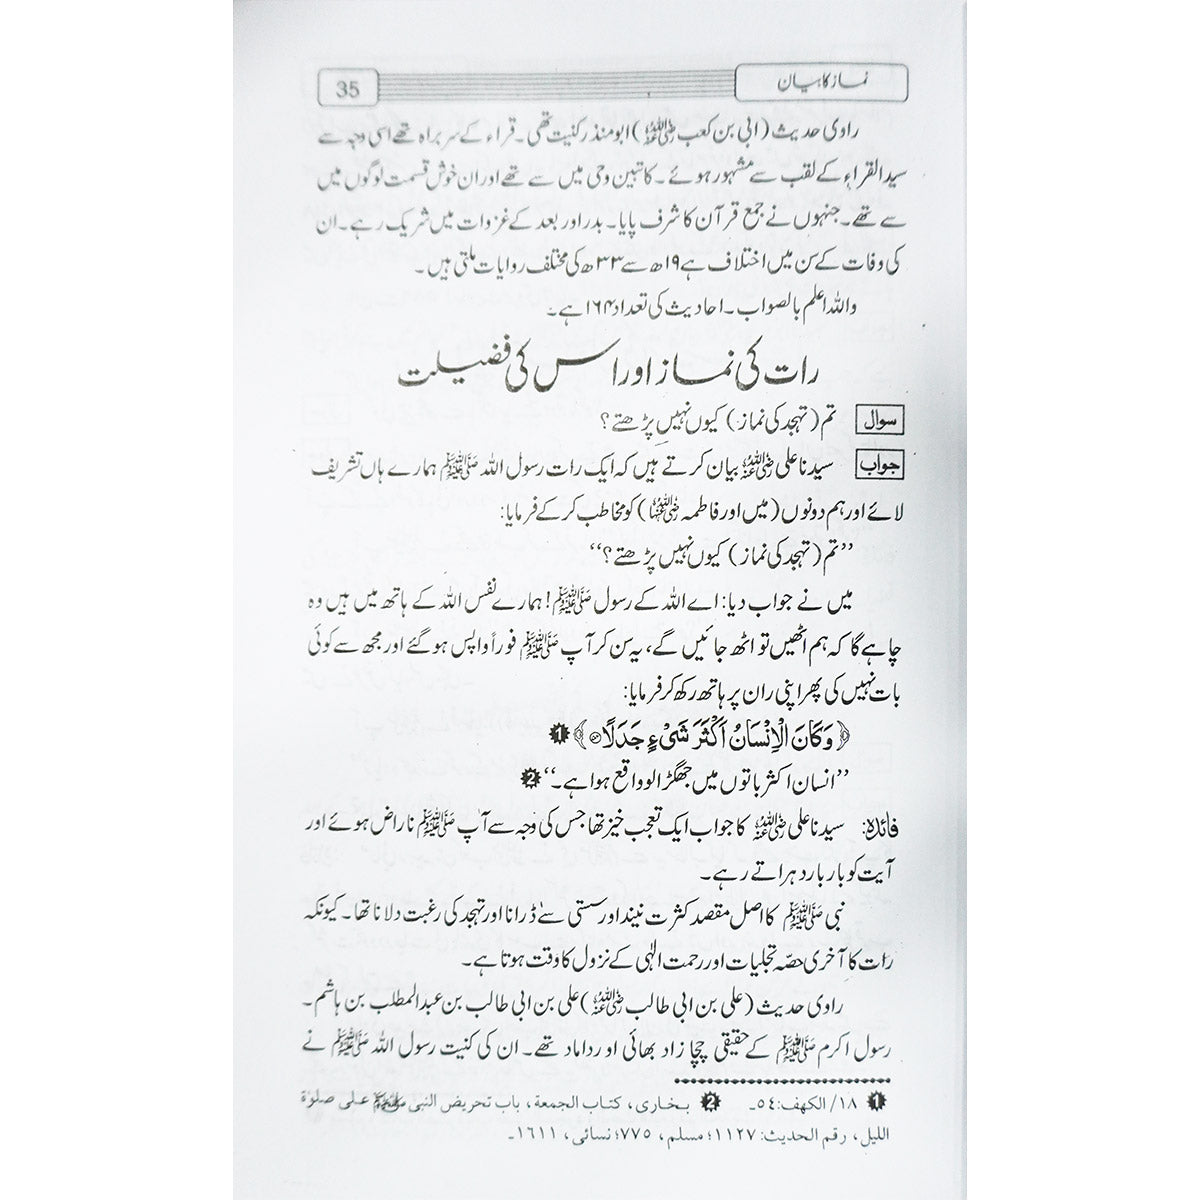 نماز کا بیان
35
راوی حدیث (ابی بن کعب رضی اللہ عنہ) ابو منذر کنیت تھی۔ قراء کے سربراہ تھے اسی وجہ سے
سید القراء کے لقب سے مشہور ہوئے۔ کاتبین وحی میں سے تھے اور ان خوش قسمت لوگوں میں
سے تھے۔ جنہوں نے جمع قرآن کا شرف پایا۔ بدر اور بعد کے غزوات میں شریک رہے۔ ان
کی وفات کے سن میں اختلاف ہے ۱۹ھ سے ۳۳ھ کی مختلف روایات ملتی ہیں۔
واللہ اعلم بالصواب۔ احادیث کی تعداد ۱۶۴ ہے۔
رات کی نماز اور اس کی فضیلت
سوال تم (تہجد کی نماز) کیوں نہیں پڑھتے؟
جواب سیدنا علی رضی اللہ عنہ بیان کرتے ہیں کہ ایک رات رسول اللہ ﷺ ہمارے ہاں تشریف
لائے اور ہم دونوں (میں اور فاطمہ رضی اللہ عنہا) کو مخاطب کر کے فرمایا:
”تم (تہجد کی نماز) کیوں نہیں پڑھتے؟“
میں نے جواب دیا: اے اللہ کے رسول ﷺ! ہمارے نفس اللہ کے ہاتھ میں ہیں وہ
چاہے گا کہ ہم اٹھیں تو اٹھ جائیں گے، یہ سن کر آپ ﷺ فوراً واپس ہو گئے اور مجھ سے کوئی
بات نہیں کی پھر اپنی ران پر ہاتھ رکھ کر فرمایا:
﴿وَكَانَ الْاِنْسَانُ اَكْثَرَ شَىْءٍ جَدَلًا﴾ 1
”انسان اکثر باتوں میں جھگڑالو واقع ہوا ہے۔“ 2
فائدہ: سیدنا علی رضی اللہ عنہ کا جواب ایک تعجب خیز تھا جس کی وجہ سے آپ ﷺ ناراض ہوئے اور
آیت کو بار بار دہراتے رہے۔
نبی ﷺ کا اصل مقصد کثرت نیند اور سستی سے ڈرانا اور تہجد کی رغبت دلانا تھا۔ کیونکہ
رات کا آخری حصہ تجلیات اور رحمت الٰہی کے نزول کا وقت ہوتا ہے۔
راوی حدیث (علی بن ابی طالب رضی اللہ عنہ) علی بن ابی طالب بن عبدالمطلب بن ہاشم۔
رسول اکرم ﷺ کے حقیقی چچا زاد بھائی اور داماد تھے۔ ان کی کنیت رسول اللہ ﷺ نے
1 ۱۸/ الکھف: ۵۴۔ 2 بخاری، کتاب الجمعة، باب تحریض النبی ﷺ علی صلوٰة
اللیل، رقم الحدیث: ۱۱۲۷؛ مسلم، ۷۷۵؛ نسائی، ۱۶۱۱۔